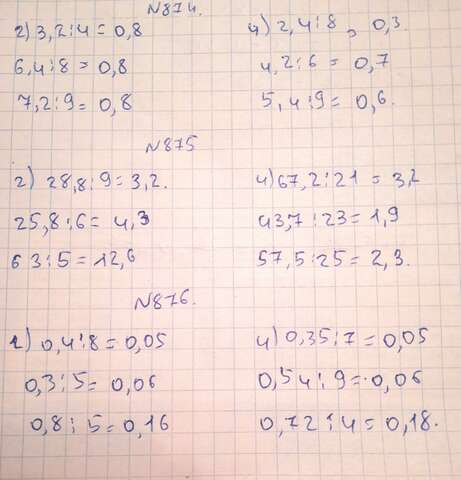 N874.
2) 3,2:4=0,8
6,4:8=0,8
7,2:9=0,8
4) 2,4:8 = 0,3.
4,2:6 = 0,7
5,4:9= 0,6.
N875
2) 28,8:9=3,2.
25,8:6= 4,3
63:5=12,6
4) 67,2:21 = 3,2
43,7:23=1,9
57,5:25=2,3.
N876.
2) 0,4:8=0,05
0,3:5= 0,06
0,8:5=0,16
4) 0,35:7=0,05
0,54:9=0,06
0,72:4=0,18.